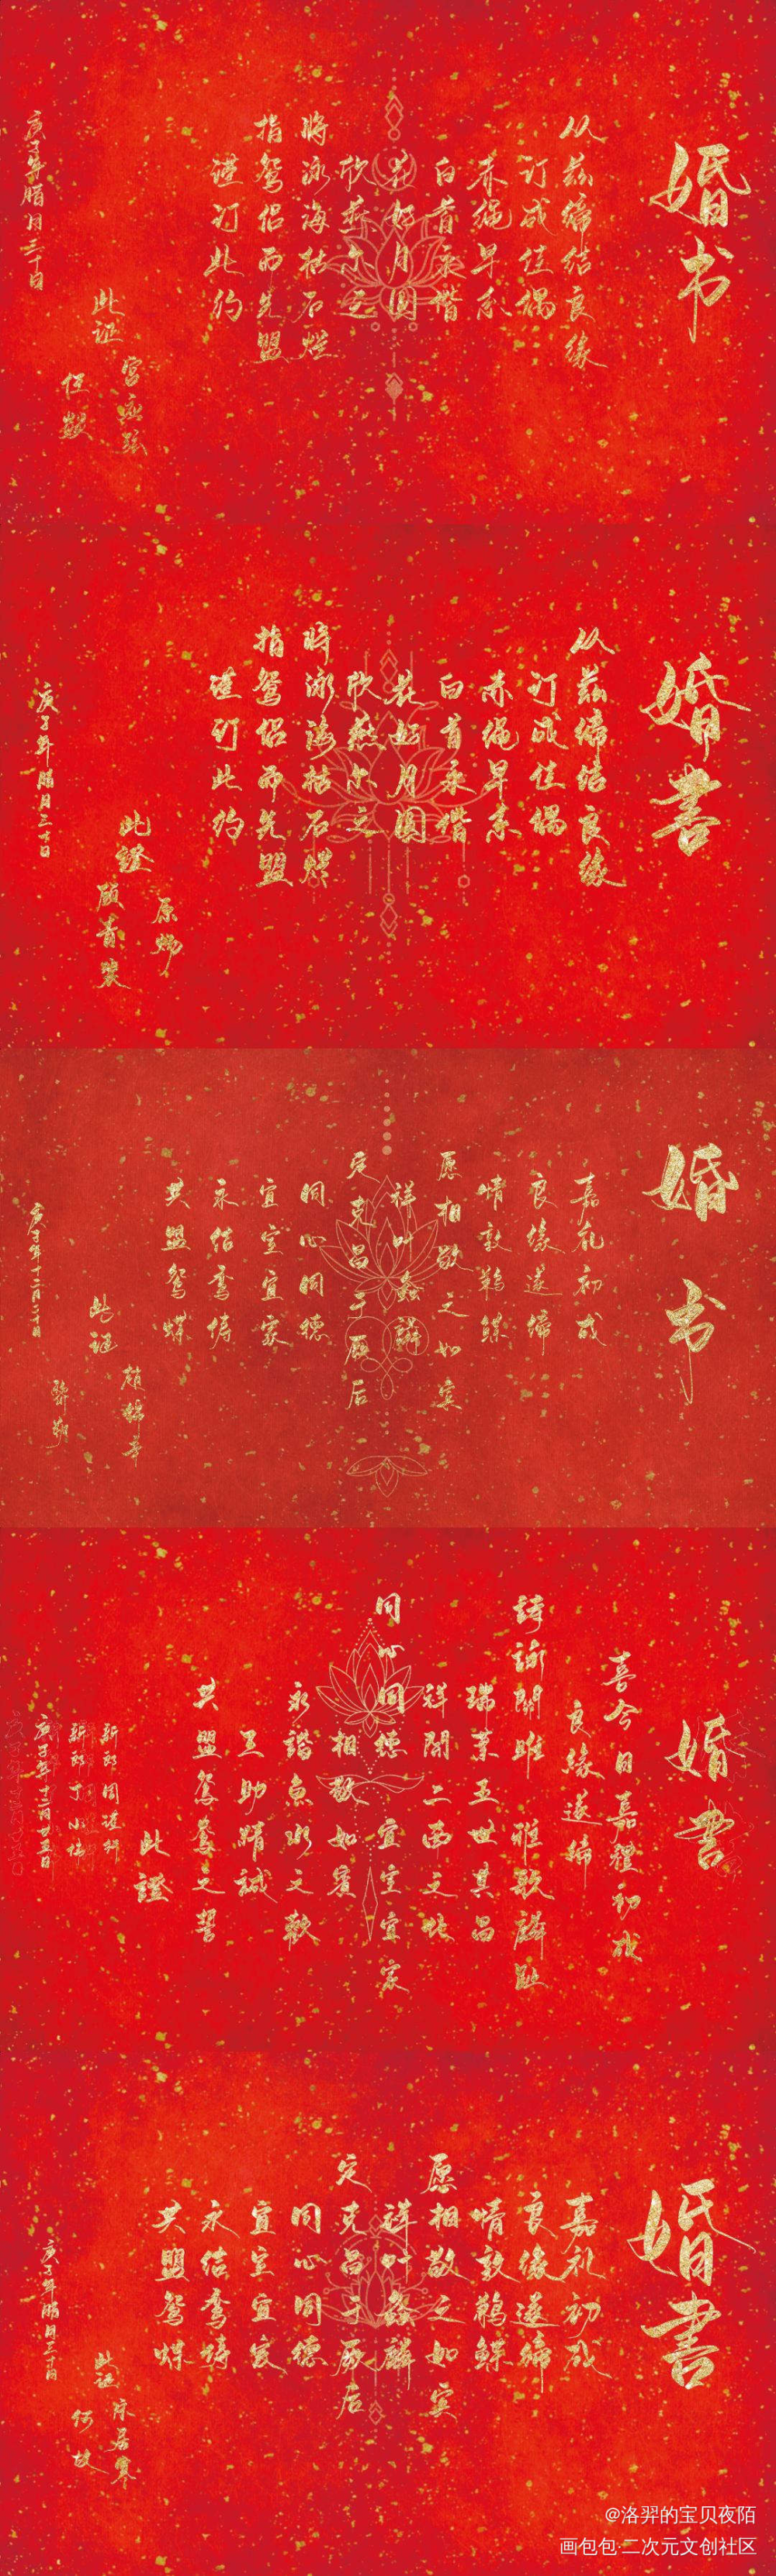 婚书
从兹缔结良缘
订成佳偶
赤绳早系
白首永偕
花好月圆
欣燕尔之
将泳海枯石烂
指鸳侣而先盟
谨订此约
此证
宫应弦
庚子年腊月三十日
婚書
从兹缔结良缘
订成佳偶
赤绳早系
白首永偕
花好月圆
欣燕尔之
将泳海枯石烂
指鸳侣而先盟
谨订此约
此證
原炀
顾青裴
庚子年腊月三十日
婚书
嘉礼初成
良缘遂缔
情敦鹣鲽
愿相敬之如宾
祥叶螽麟
定克昌于厥后
同心同德
宜室宜家
永结鸾俦
共盟鸳蝶
此证
赵锦辛
黎朔
庚子年十二月二十日
婚書
喜今日嘉禮初成
良緣遂締
詩詠關雎 雅歌麟趾
瑞葉五世其昌
祥開二南之化
同心同德 宜室宜家
相敬如賓
永諧魚水之歡
互助精誠
共盟鴛鴦之誓
此證
新郎周谨行
新郎丁小伟
庚子年十二月廿五日
婚書
嘉礼初成
良缘遂缔
情敦鹣鲽
愿相敬之如宾
祥叶螽麟
定克昌于厥后
同心同德
宜室宜家
永结鸾俦
共盟鸳蝶
此证
宋居寒
何故
庚子年腊月三十日
@洛羿的宝贝夜陌
画包包·二次元文创社区